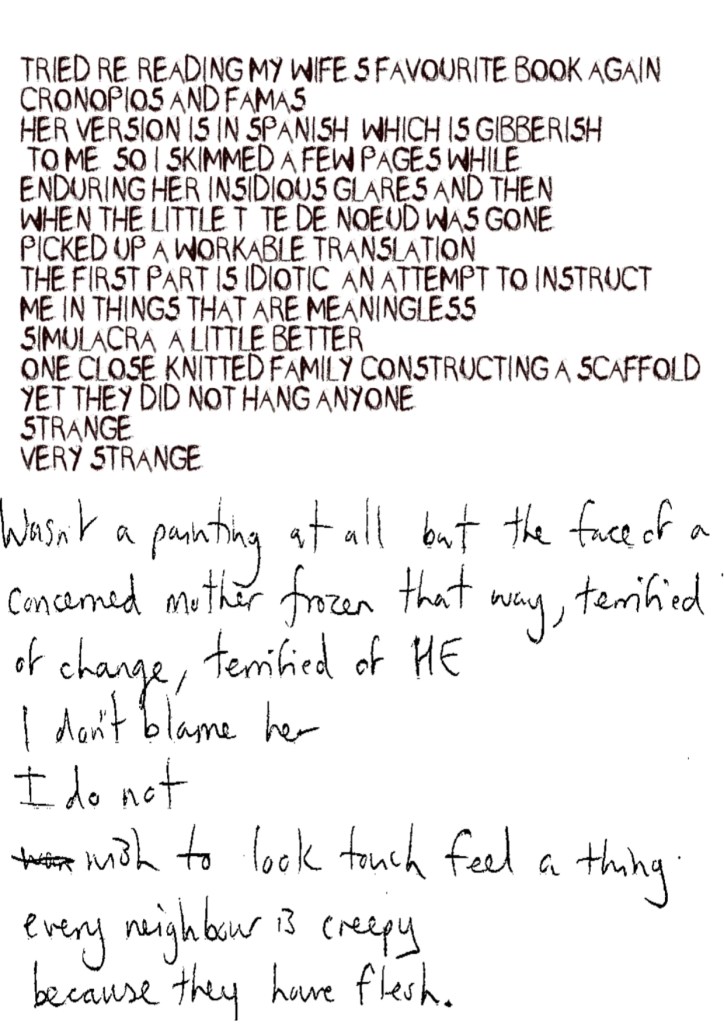 TRIED RE READING MY WIFE S FAVOURITE BOOK AGAIN
CRONOPIOS AND FAMAS
HER VERSION IS IN SPANISH WHICH IS GIBBERISH
TO ME SO I SKIMMED A FEW PAGES WHILE
ENDURING HER INSIDIOUS GLARES AND THEN
WHEN THE LITTLE T TE DE NOEUD WAS GONE
PICKED UP A WORKABLE TRANSLATION
THE FIRST PART IS IDIOTIC AN ATTEMPT TO INSTRUCT
ME IN THINGS THAT ARE MEANINGLESS
SIMULACRA A LITTLE BETTER
ONE CLOSE KNITTED FAMILY CONSTRUCTING A SCAFFOLD
YET THEY DID NOT HANG ANYONE
STRANGE
VERY STRANGE
Wasn't a painting at all but the face of a
concerned mother frozen that way, terrified
of change, terrified of HE
I don't blame her
I do not
wish to look touch feel a thing
every neighbour is creepy
because they have flesh.